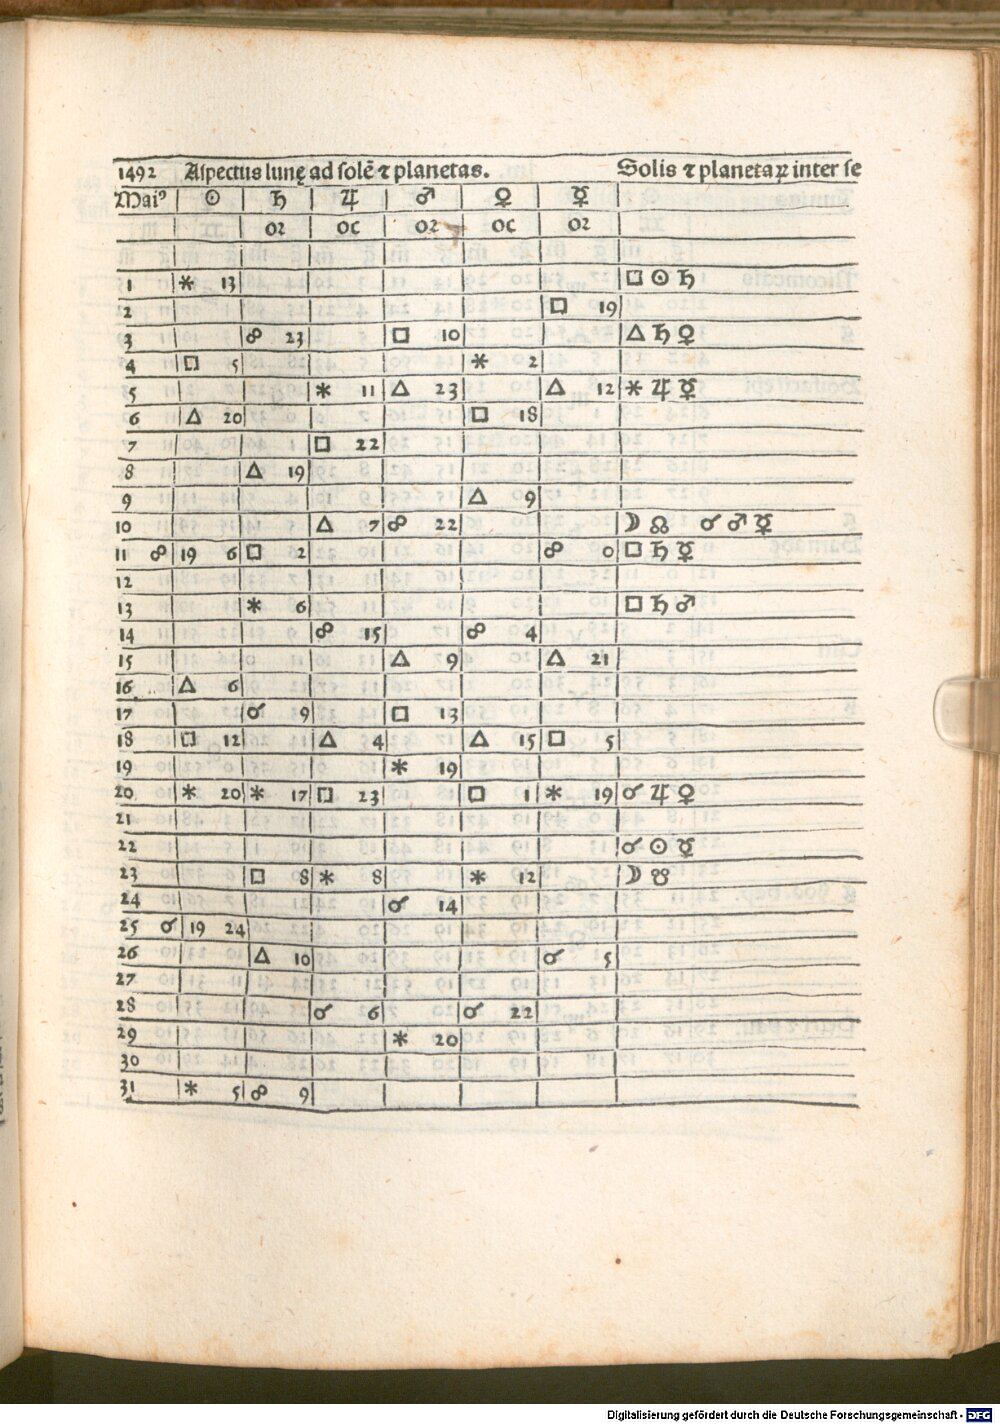 1492 Aspectus lunę ad solē ⁊ planetas. Solis ⁊ planetaꝝ inter se
Maiꝰ ☉ ♄ ♃ ♂ ♀ ☿
or oc or oc or
1 ⚹ 13 □ ☉ ♄
2 □ 19
3 ☍ 23 □ 10 △ ♄ ♀
4 □ 5 ⚹ 2
5 ⚹ 11 △ 23 △ 12 ⚹ ♃ ☿
6 △ 20 □ 18
7 □ 22
8 △ 19
9 △ 9
10 △ 7 ☍ 22 ☽ ☊ ☌ ♂ ☿
11 ☍ 19 6 □ 2 ☍ 0 □ ♄ ☿
12
13 ⚹ 6 □ ♄ ♂
14 ☍ 15 ☍ 4
15 △ 9 △ 21
16 △ 6
17 ☌ 9 □ 13
18 □ 12 △ 4 △ 15 □ 5
19 ⚹ 19
20 ⚹ 20 ⚹ 17 □ 23 □ 1 ⚹ 19 ☌ ♃ ♀
21
22 ☌ ☉ ☿
23 □ 8 ⚹ 8 ⚹ 12 ☽ ☋
24 ☌ 14
25 ☌ 19 24
26 △ 10 ☌ 5
27
28 ☌ 6 ☌ 22
29 ⚹ 20
30
31 ⚹ 5 ☍ 9
Digitalisierung gefördert durch die Deutsche Forschungsgemeinschaft - DFG